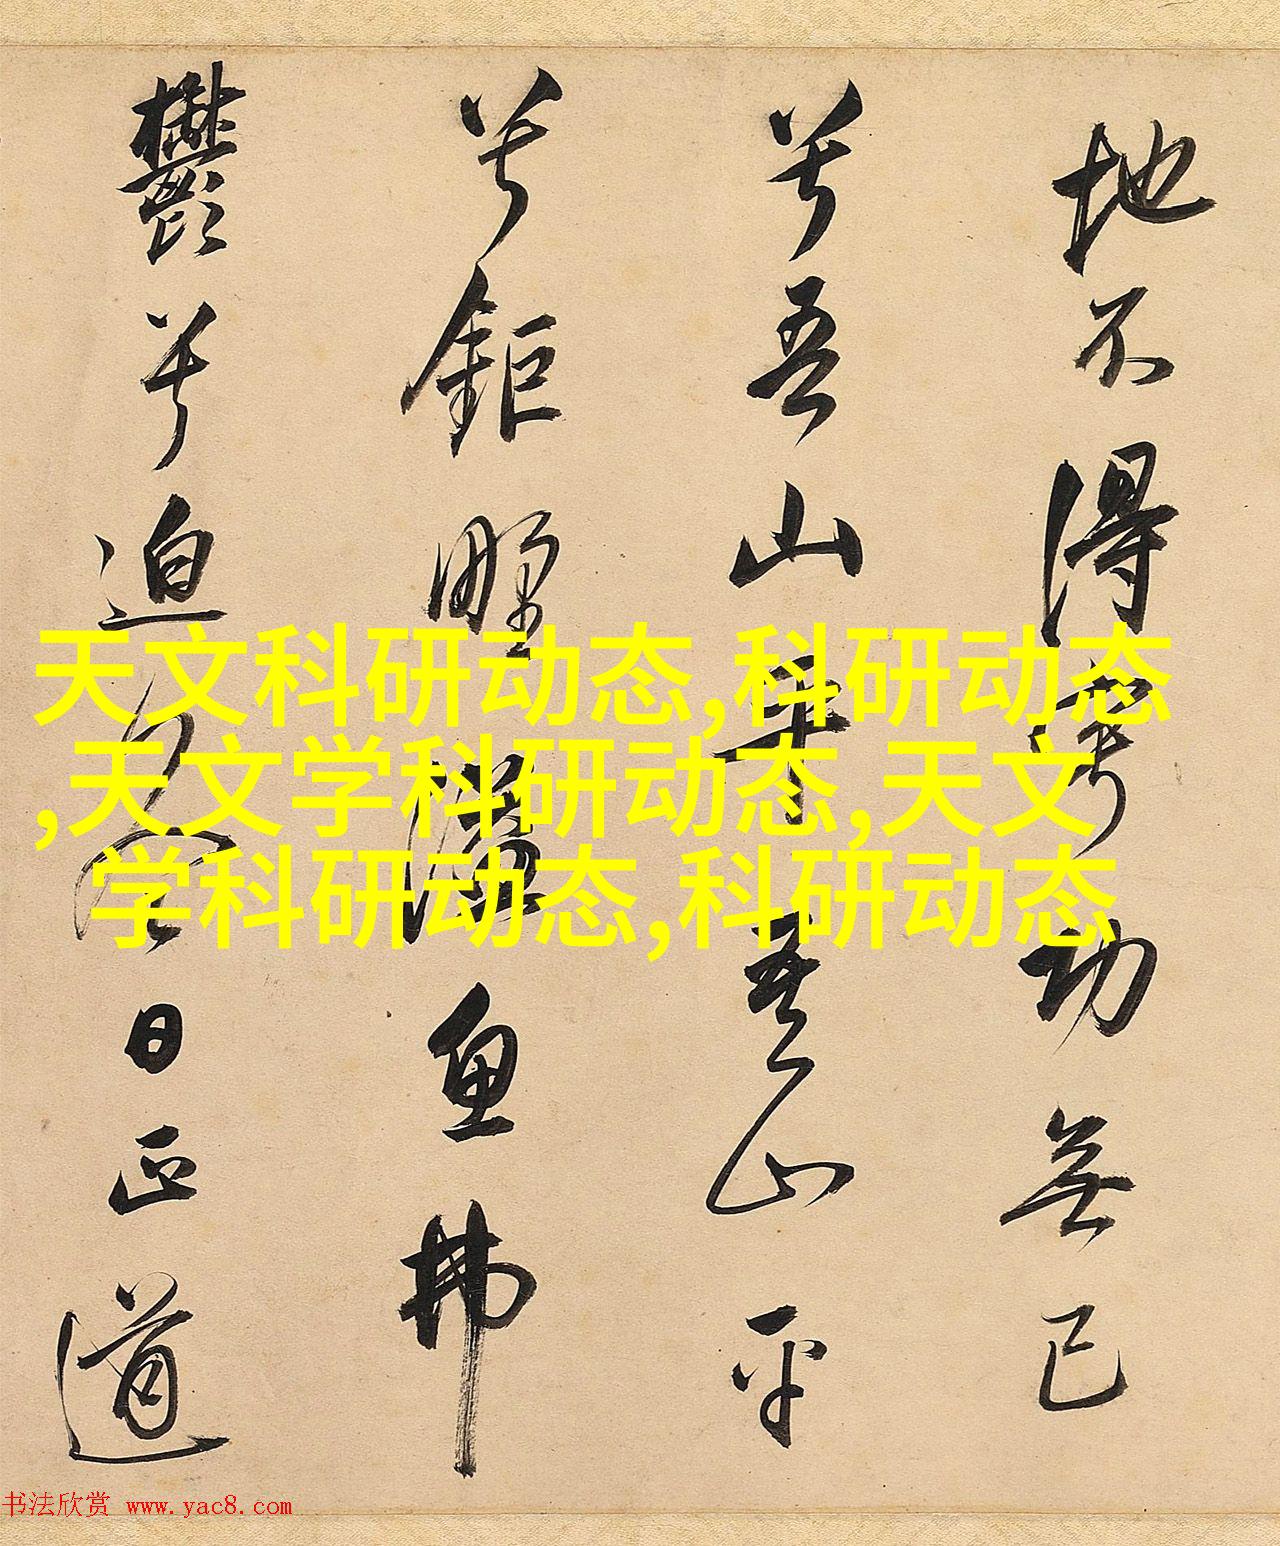 地不得寧功無已
兮吾山平吾山平
兮鉅野溢魚弗
鬱兮迫冬日正道
天文科研动态,科研动态
,天文学科研动态,天文
学科研动态,科研动态
书法欣赏 www.yac8.com